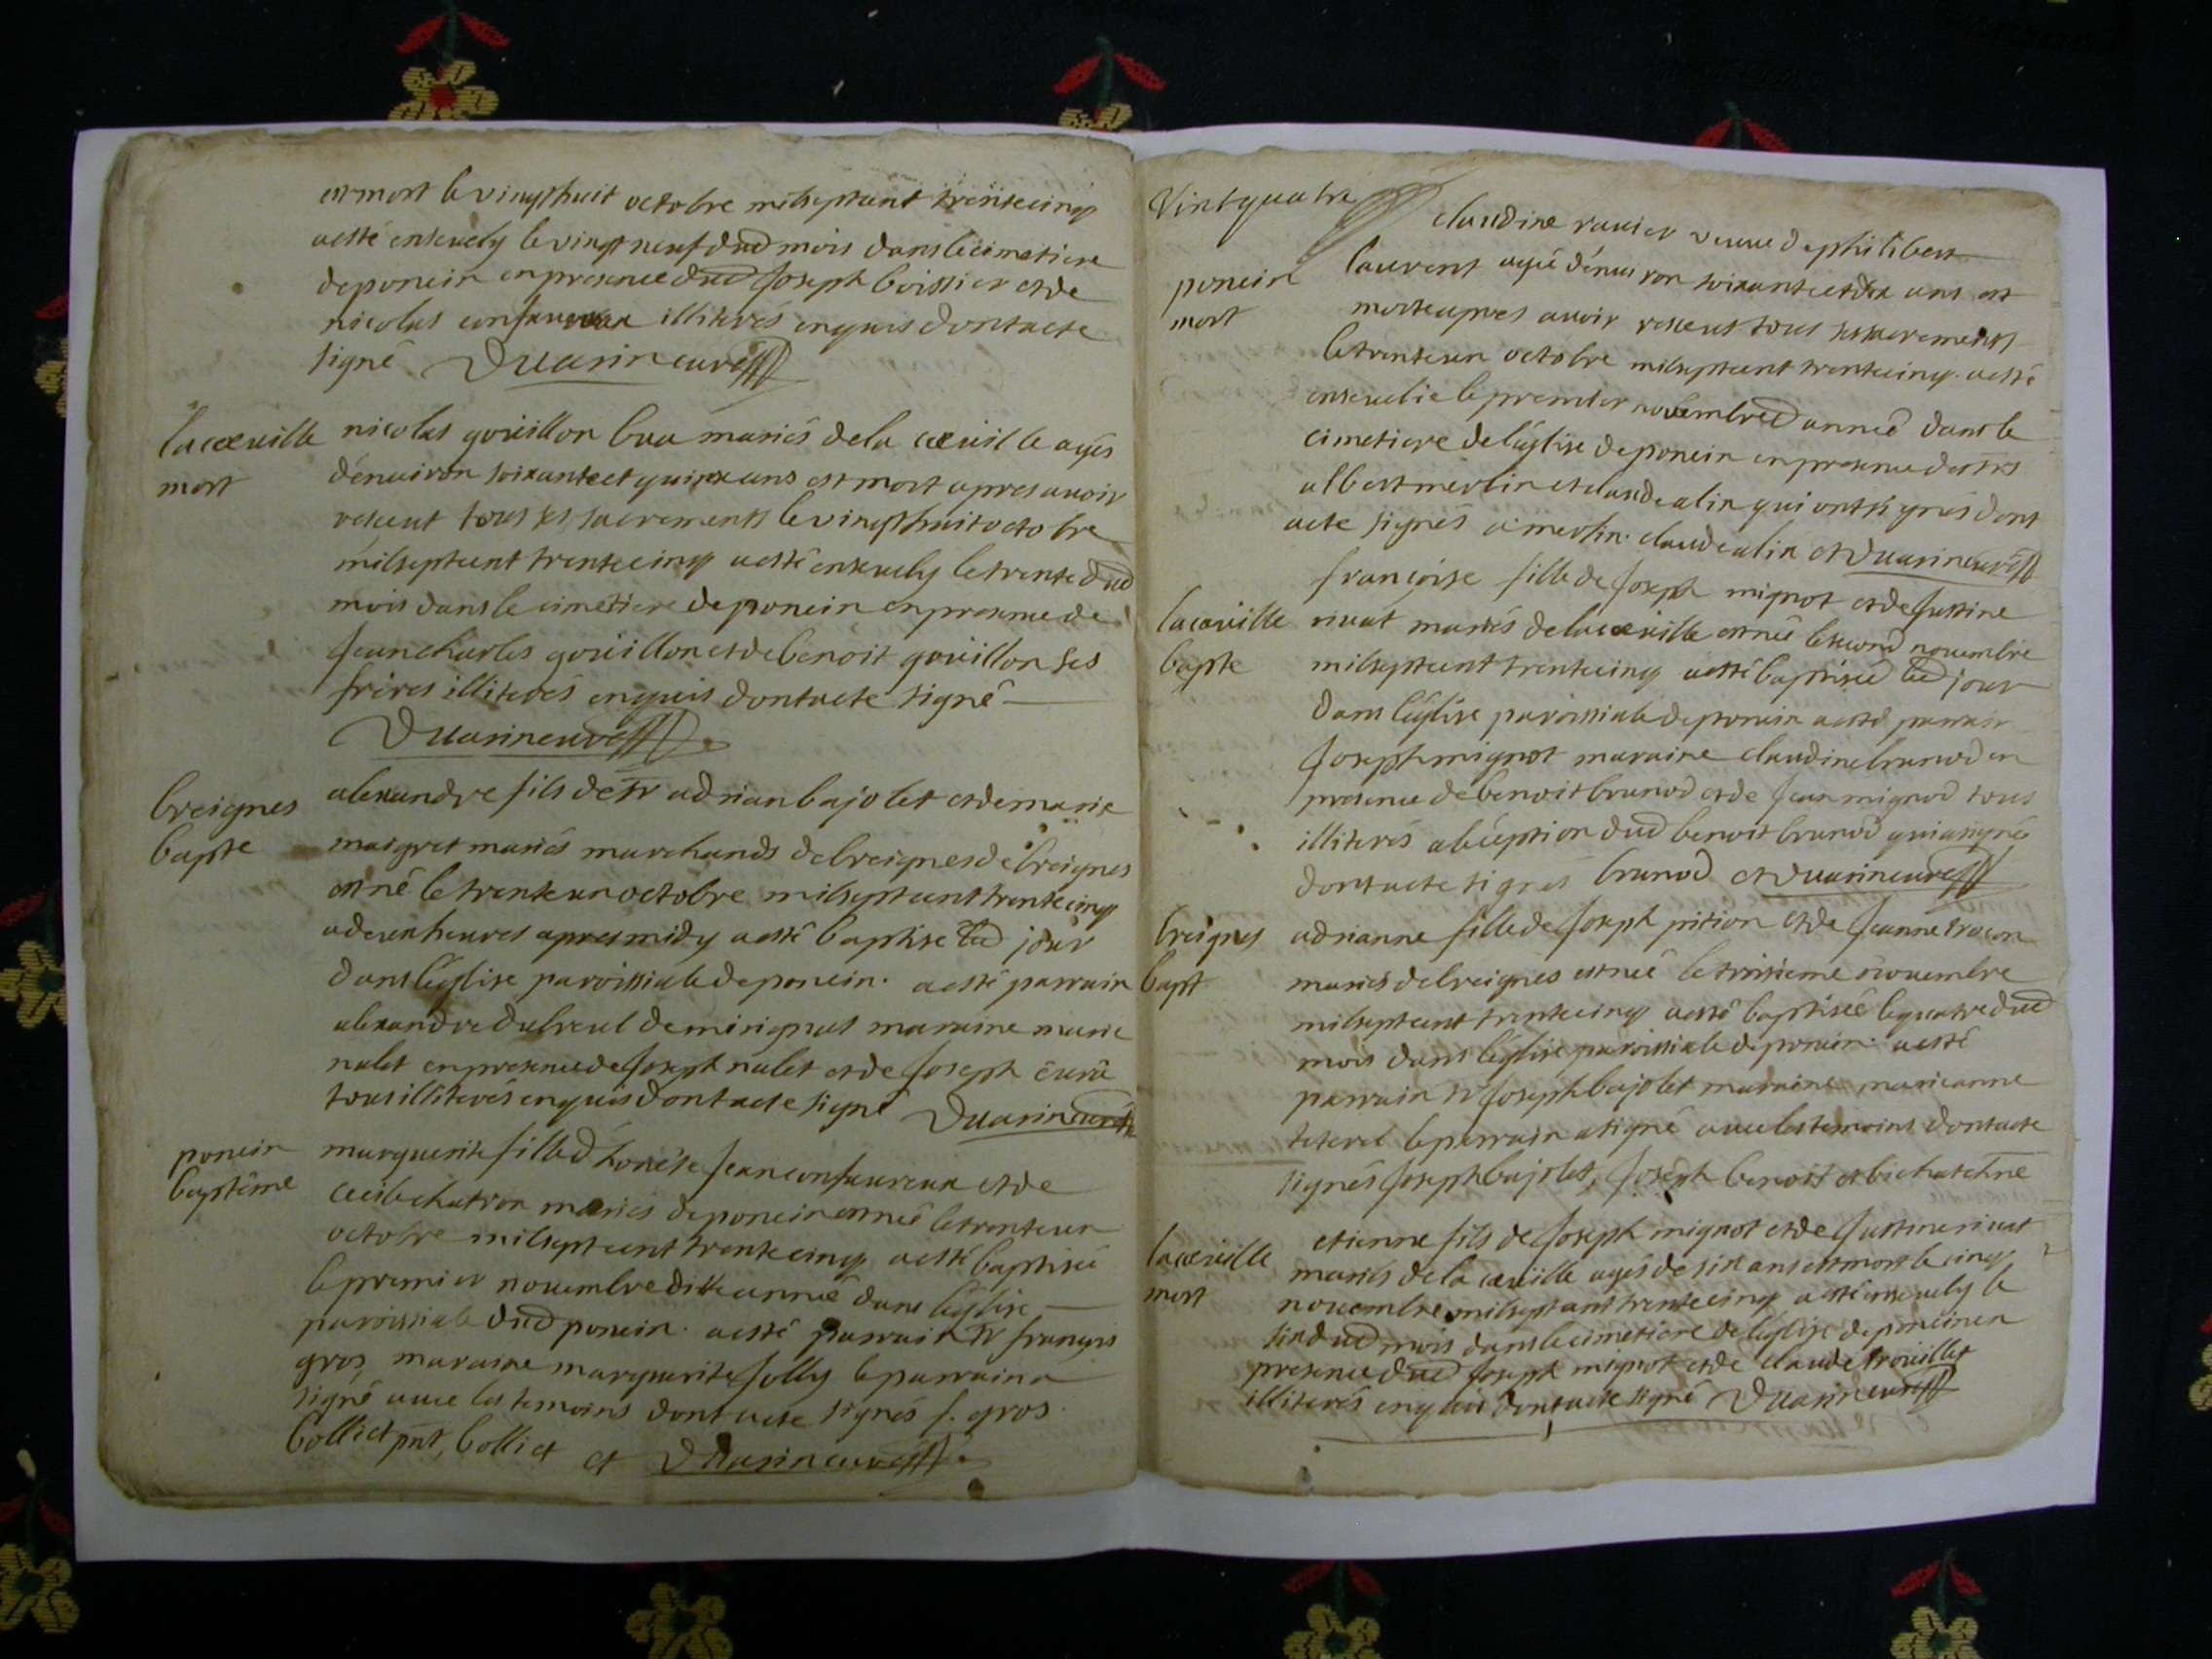 est mort le vingt huit octobre mil sept cent trente cinq
a esté ensevely le vingt neuf dud mois dans le cimetiere
de poncin en presence dud Joseph boissier et de
nicolas confavreux illiterés enquis dont acte
signé Duarin curé
la cueuille
mort
nicolas gouillon bua mariés de la cueuille agés
d'enuiron soixante et quinze ans est mort apres auoir
receut tous les sacrements le vingt huit octobre
mil sept cent trente cinq a esté ensevely le trente dud
mois dans le cimetiere de poncin en presence de
Jean charles gouillon et de benoit gouillon ses
freres illiterés enquis dont acte signé
Duarin curé
breignes
bapte
alexandre fils de sr adrian bajolet et de marie
maigret mariés marchands de breignes de breignes
est né le trente un octobre mil sept cent trente cinq
a deux heures apres midy a esté baptise led jour
dans l'église paroissiale de poncin. a esté parrain
alexandre dubreul de mirignat marraine marie
nalet en presence de Joseph nalet et de Joseph
tous illiterés enquis dont acte signé Duarin curé
poncin
baptême
marguerite fille d'honéste Jean confavreux et de
cecile chatron mariés de poncin est née le trente un
octobre mil sept cent trente cinq a esté baptisée
le premier nouembre ditte année dans l'église
paroissiale dud poncin. a esté parrain sr françois
gros, maraine marguerite Jolly le parrain a
signé auec les temoins dont acte signés f. gros
bolliet pnt, bolliet et Duarin curé
Vint quatre
poncin
mort
claudine rauier veuue de philibert
laurent agée d'enuiron soixante et dix ans est
morte apres auoir receut tous les sacrements
le trente un octobre mil sept cent trente cinq. a esté
ensevelie le premier novembre d année dans le
cimetiere de l'église de poncin en presence de srs
albert merlin et claude alin qui ont signés dont
acte signés a merlin. claude alin et Duarin curé
la cueuille
bapte
françoise fille de Joseph mignot et de Justine
riuat mariés de la cueuille est née le second nouembre
mil sept cent trente cinq a esté baptisée led jour
dans l'église paroissiale de poncin a esté parrain
Joseph mignot maraine claudine brunod en
presence de benoit brunod et de Jean mignod tous
illiterés a l'éception dud benoit brunod qui a signé
dont acte signés brunod et Duarin curé
breignes
bapt
adrianne fille de Joseph pition et de Jeanne
mariés de breignes est née le troisieme nouembre
mil sept cent trente cinq a esté baptisée le quatre dud
mois dans l'église paroissiale de poncin. a esté
parrain sr Joseph bajolet maraine marie anne
le parrain a signé auec les temoins dont acte
signés Joseph bajolet, Joseph benoit et
la cueuille
mort
etienne fils de Joseph mignot et de Justine riuat
mariés de la cueuille agés de six ans est mort le cinq
nouembre mil sept cent trente cinq a esté ensevely le
six dud mois dans le cimetiere de l'église de poncin en
presence dud Joseph mignot et de claude trouillet
illiterés enquis dont acte signé Duarin curé